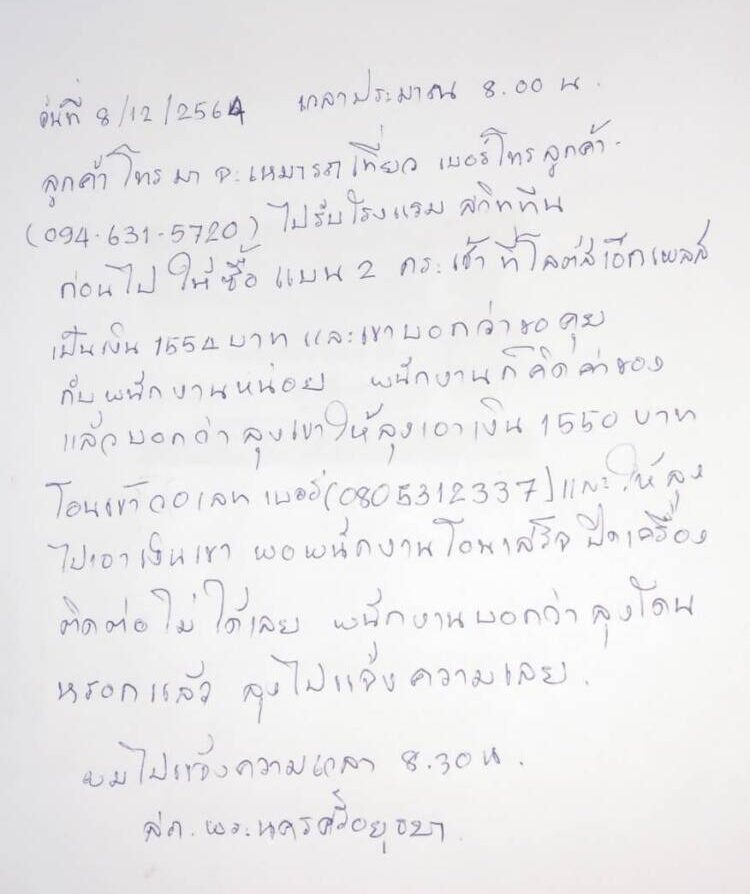 วันที่ 8/12/2564 เวลาประมาณ 8.00 น.
ลูกค้าโทรมาจะเหมารถเที่ยว เบอร์โทรลูกค้า
(094-631-5720) ไปรับโรงแรม สวิททีน
ก่อนไป ให้ซื้อ แบน 2 กระเช้า ที่โลตัสเอ็กเพลส
เป็นเงิน 1554 บาท และเขาบอกว่าขอคุย
กับพนักงานหน่อย พนักงานก็คิดค่าของ
แล้วบอกว่า ลุงเขาให้ลุงเอาเงิน 1550 บาท
โอนเข้าวอเลท เบอร์(0805312337)และให้ลุง
ไปเอาเงินเขา พอพนักงานโอนเสร็จ ปิดเครื่อง
ติดต่อไม่ได้เลย พนักงานบอกว่า ลุงโดน
หรอกแล้ว ลุงไปแจ้งความเลย.
ผมไปแจ้งความเวลา 8.30น.
สภ. พระนครศรีอยุธยา